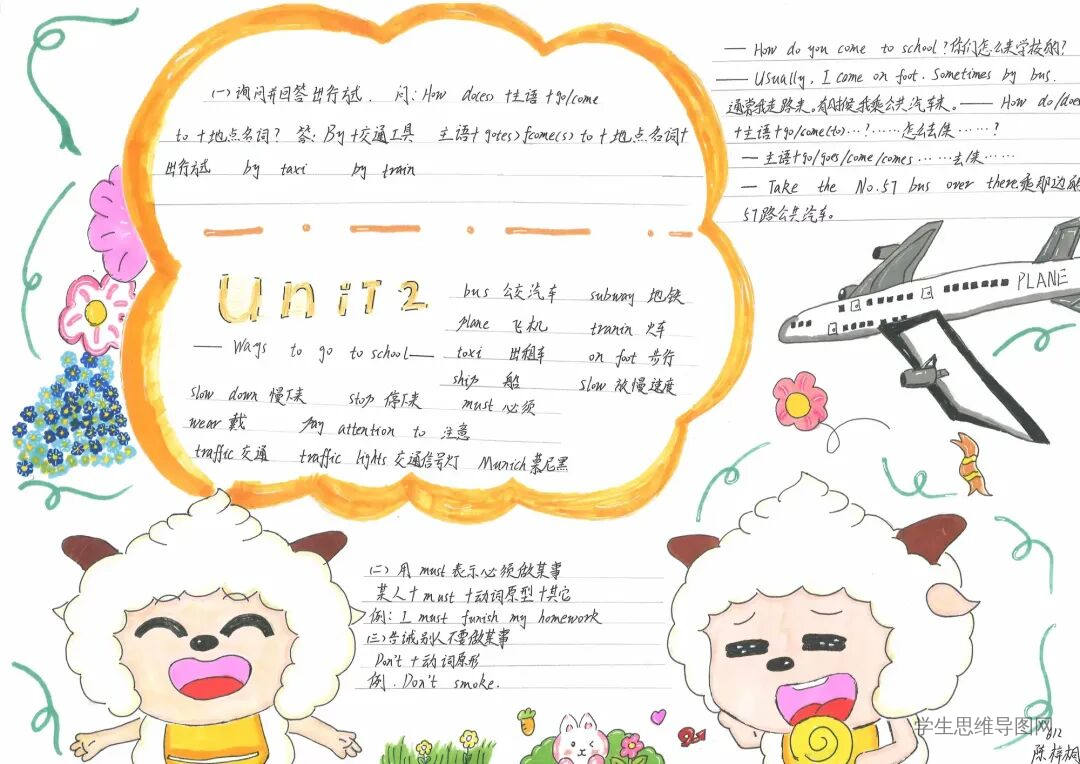 (一)询问并回答出行方式. 问:How do(es) +主语+go/come
to +地点名词? 答: By +交通工具 主语+go(es) /come(s) to +地点名词+
出行方式 by taxi by train
UniT 2
— Ways to go to school —
bus 公交汽车 subway 地铁
plane 飞机 tranin 火车
taxi 出租车 on foot 步行
ship 船 slow 放慢速度
slow down 慢下来 stop 停下来 must 必须
wear 戴 Pay attention to 注意
traffic 交通 traffic lights 交通信号灯 Munich 慕尼黑
— How do you come to school?你们怎么来学校的?
— Usually, I come on foot. Sometimes by bus.
通常我走路来。有时候我乘公共汽车来。— How do/does
+主语+go/come(to)…?……怎么去/来……?
— 主语+go/goes/come/comes ……去/来……
— Take the No.57 bus over there.乘那边的
57路公共汽车。
PLANE
(二) 用 must 表示必须做某事
某人+must +动词原型+其它
例: I must funish my homework
(三)告诫别人不要做某事
Don't +动词原形
例. Don't smoke.
学生思维导图网
陈梓桐